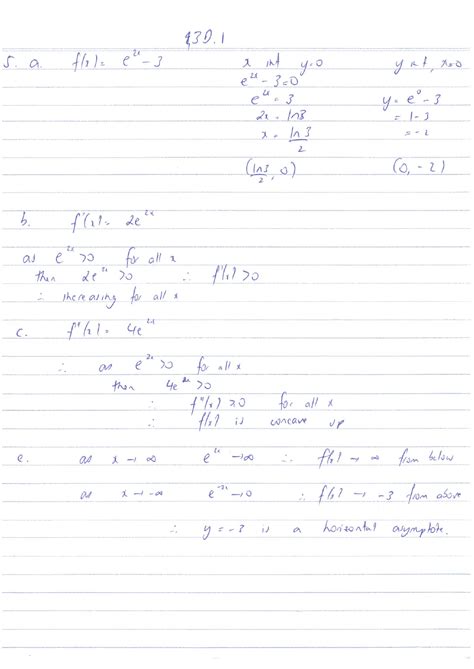 §3D.1
5. a. f(x) = e^{2x} - 3 x int y=0 y int, x=0
e^{2x} - 3 = 0
e^{2x} = 3 y = e^0 - 3
2x = ln3 = 1-3
x = ln 3 / 2 = -2
(ln3/2, 0) (0, -2)
b. f'(x) = 2e^{2x}
as e^{2x} > 0 for all x
then 2e^{2x} > 0 ∴ f'(x) > 0
∴ increasing for all x
c. f''(x) = 4e^{2x}
∴ as e^{2x} > 0 for all x
then 4e^{2x} > 0
∴ f''(x) > 0 for all x
∴ f(x) is concave up
e. as x → ∞ e^{2x} → ∞ ∴ f(x) → ∞ from below
as x → -∞ e^{-2x} → 0 ∴ f(x) → -3 from above
∴ y = -3 is a horizontal asymptote.